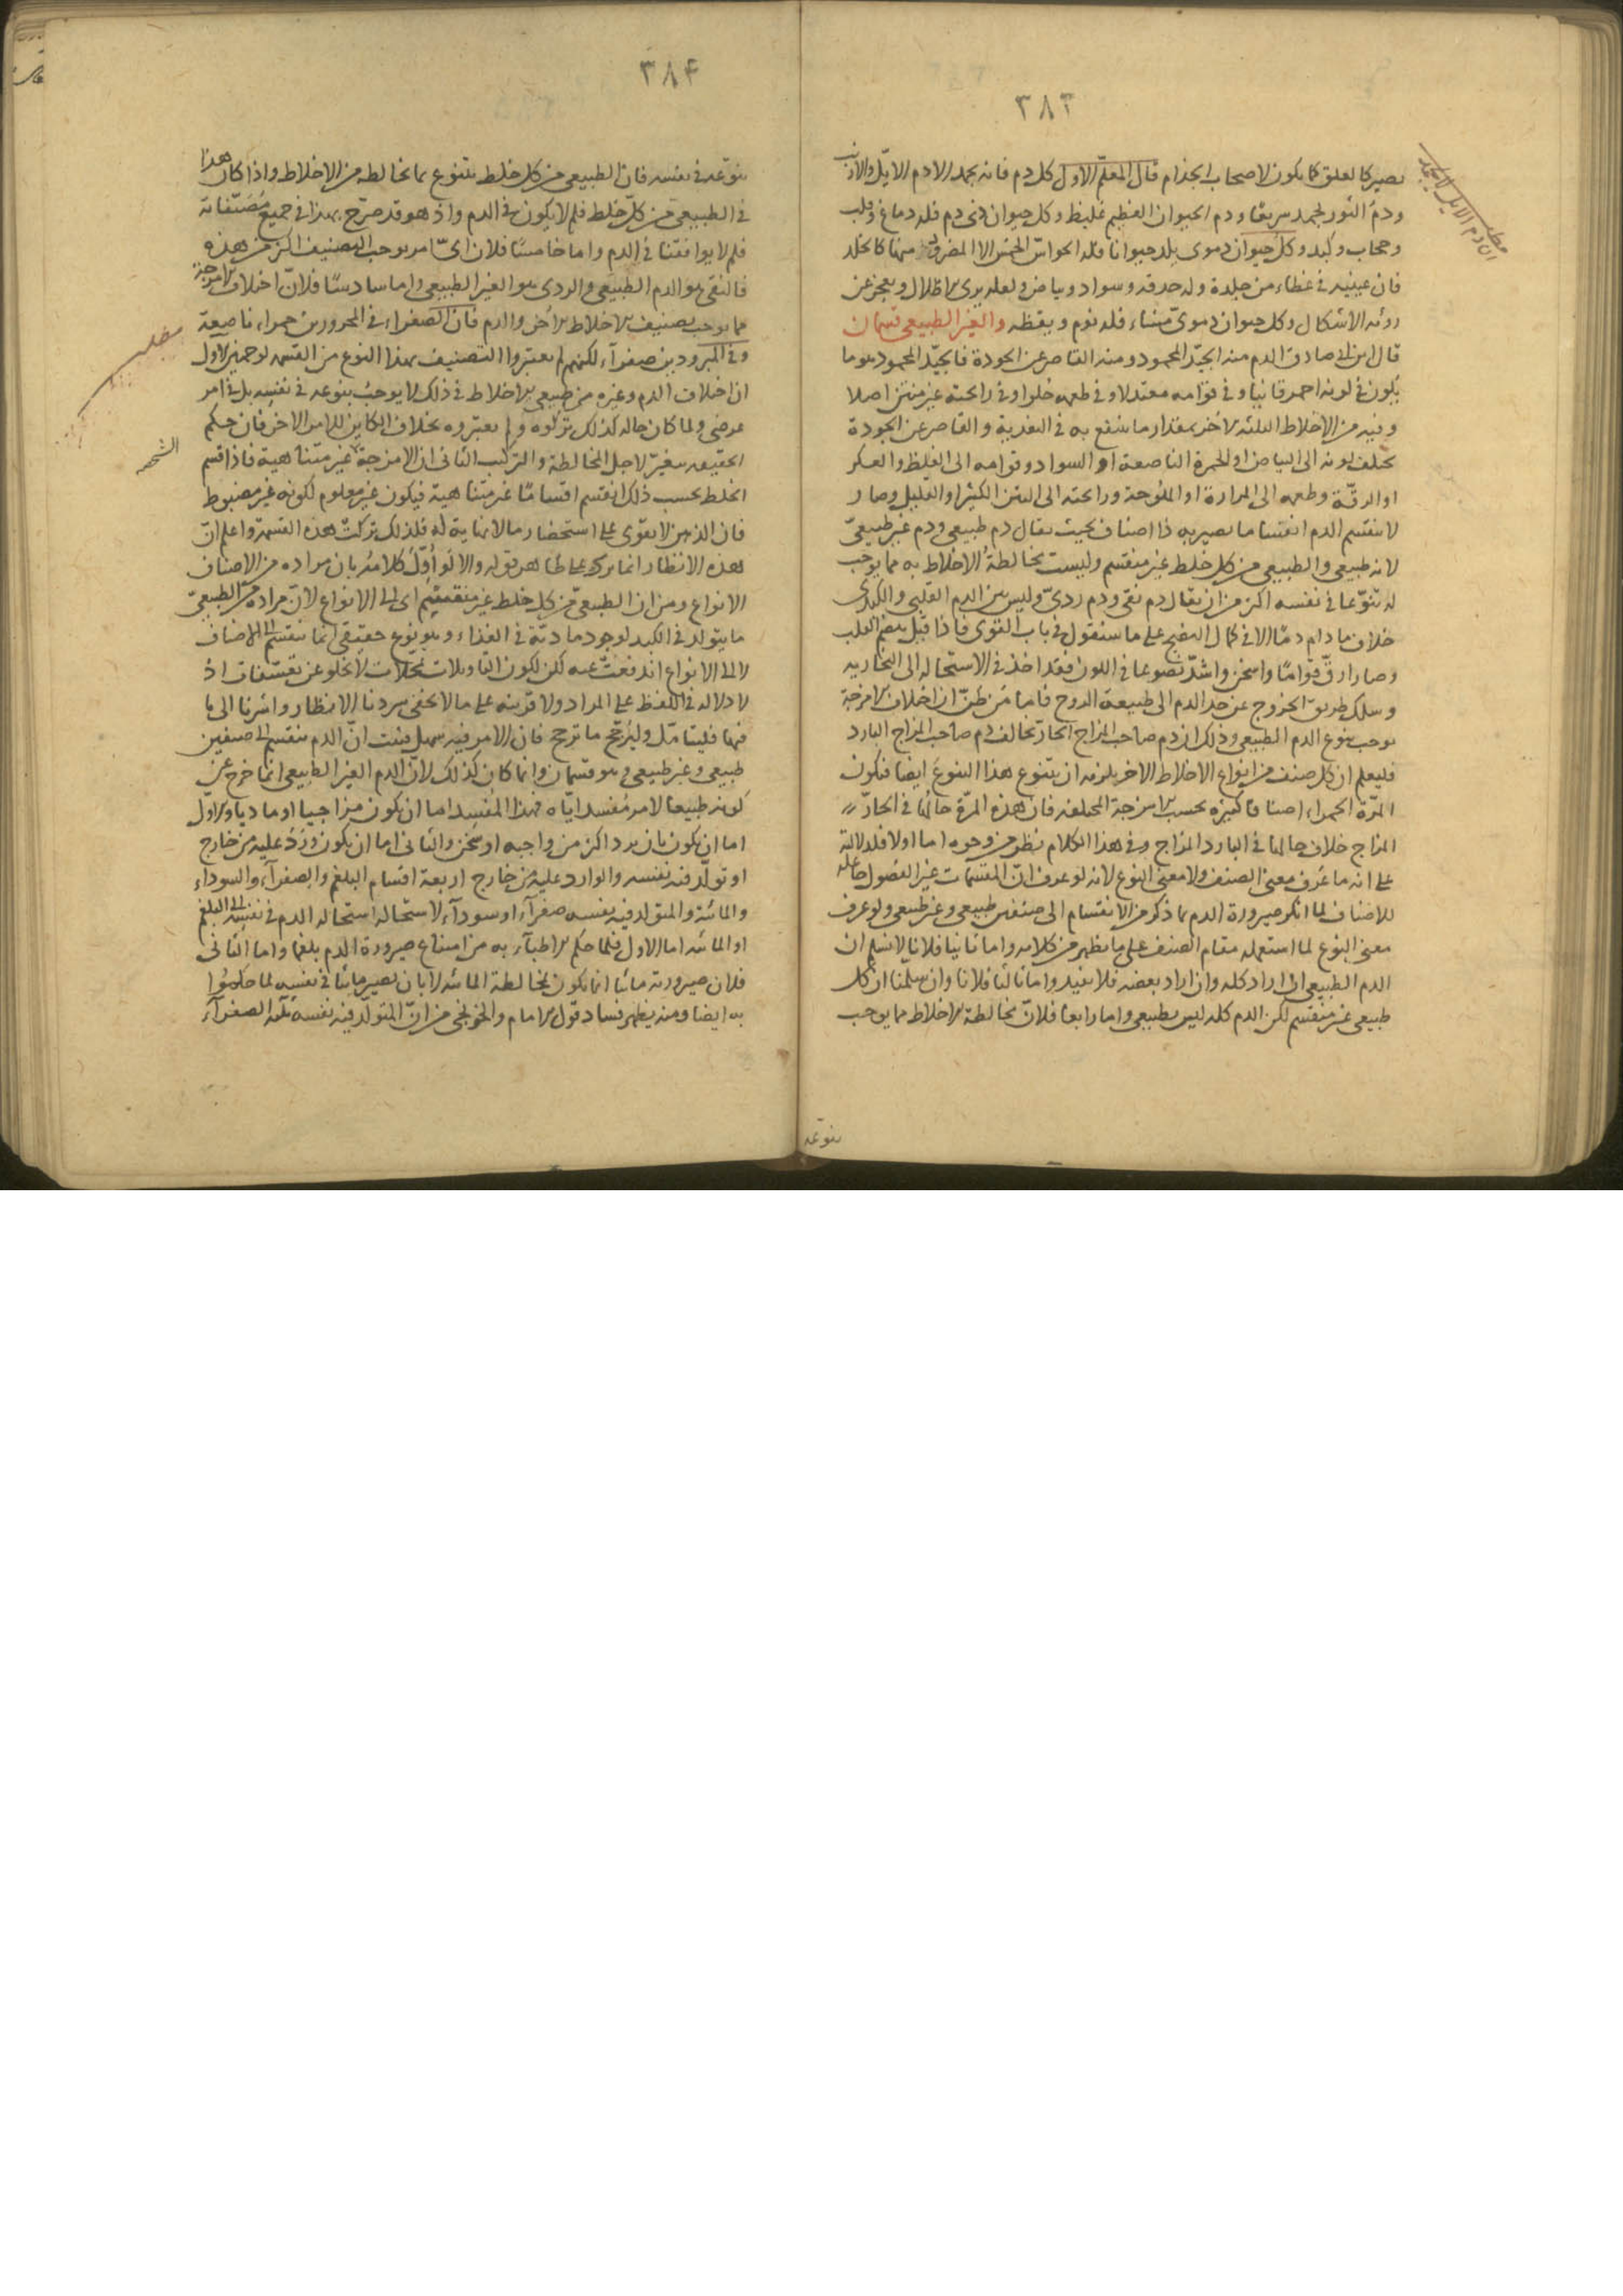 ٣٨٣
يصير كالعلق كما يكون لاصحاب الجذام قال المعلم الاول كل دم فانه يجمد الا دم الايل والارنب
ودم الثور يجمد سريعا ودم الحيوان العظيم غليظ وكل حيوان ذى دم فله دماغ وقلب
وحجاب وكبد وكل حيوان دموى يلد حيوانا فله الحواس الخمس الا المضرور منها كالخلد
فان عينيه فى غطاء من جلدة وله حدقة وسواد وبياض ولعله يرى الاظلال ويعجز عن
رؤية الاشكال وكل حيوان دموى مشاء فله نوم ويقظة والغير الطبيعى قسمان
قال ابن ابى صادق الدم منه الجيد المحمود ومنه القاصر عن الجودة فالجيد المحمود هو ما
يكون فى لونه احمر قانيا وفى قوامه معتدلا وفى طعمه حلوا وفى رائحته غير منتن اصلا
وفيه من الاخلاط الثلثة الاخر بمقدار ما ينتفع به فى التغذية والقاصر عن الجودة
يختلف لونه الى البياض او الحمرة الناصعة او السواد وقوامه الى الغلظ والعكر
او الرقة وطعمه الى المرارة او الملوحة ورائحته الى النتن الكثير او القليل وصار
لا ينقسم الدم انقساما يصير به ذا اصناف بحيث يقال دم طبيعى ودم غير طبيعى
لانه طبيعى والطبيعى من كل خلط غير منقسم وليست مخالطة الاخلاط به مما يوجب
له تنوعا فى نفسه اكثر من ان يقال دم نقى ودم ردى وليس بين الدم القلبى والكبدى
خلاف ما دام دما الا فى كمال النضج على ما سنقول فى باب القوى فاذا قبل هضم القلب
وصار ارق قواما واسخن واشد نصوعا فى اللون فقد اخذ فى الاستحالة الى البخارية
وسلك طريق الخروج عن حد الدم الى طبيعة الروح فاما من ظن ان اختلاف الامزجة
يوجب تنوع الدم الطبيعى وذلك ان دم صاحب المزاج الحار يخالف دم صاحب المزاج البارد
فليعلم ان كل صنف من انواع الاخلاط الاخر يلزمه ان يتنوع هذا التنوع ايضا فيكون
المرة الحمراء اصنافا كثيرة بحسب الامزجة المختلفة فان هذه المرة حالها فى الحار
المزاج خلاف حالها فى البارد المزاج وفى هذا الكلام نظر من وجوه اما اولا فلدلالته
على انه ما عرف معنى الصنف ولا معنى النوع لانه لو عرف ان المقسمات غير الفصول جاعلة
للاصناف لما انكر صيرورة الدم بما ذكر من الانقسام الى صنفين طبيعى وغير طبيعى ولو عرف
معنى النوع لما استعمله مقام الصنف على ما يظهر من كلامه واما ثانيا فلانا لا نسلم ان
الدم الطبيعى ان اراد كله وان اراد بعضه فلا يفيد واما ثالثا فلانا وان سلمنا ان كل
طبيعى غير منقسم لكن الدم كله ليس بطبيعى واما رابعا فلان مخالطة الاخلاط مما يوجب
تنوعه
٣٨٤
تنوعه فى نفسه فان الطبيعى من كل خلط يتنوع بما يخالطه من الاخلاط واذا كان هذا
فى الطبيعى من كل خلط فلم لا يكون فى الدم واذ هو قد صرح بهذا فى جميع مصنفاته
فلم لا يوافقنا فى الدم واما خامسا فلان اى امر يوجب التصنيف اكثر من هذه
فالنقى هو الدم الطبيعى والردى هو الغير الطبيعى واما سادسا فلان اختلاف الامزجة
مما يوجب تصنيف الاخلاط الاخر والدم فان الصفراء فى المحرورين حمراء ناصعة
وفى المبرودين صفراء لكنهم لم يعتبروا التصنيف بهذا النوع من القسمة لوجهين الاول
ان اختلاف الدم وغيره من طبيعى الاخلاط فى ذلك لا يوجب تنوعه فى نفسه بل فى امر
عرضى ولما كان حاله كذلك تركوه ولم يعتبروه بخلاف الكاين للامر الاخر فان حكم
الحقيقة يتغير لاجل المخالطة والتركيب الثانى ان الامزجة الشخصية غير متناهية فاذا قسم
الخلط بحسب ذلك انقسم اقساما غير متناهية فيكون غير معلوم لكونه غير مضبوط
فان الذهن لا يقوى على استحضار ما لا نهاية له فلذلك تركت هذه القسمة واعلم ان
هذه الانظار انما يرد على ظاهر قوله والا لو اول كلامه بان مراده من الاصناف
الانواع ومن ان الطبيعى من كل خلط غير منقسم اى الى الانواع لان مراده من الطبيعى
ما يتولد فى الكبد لوجود مادته فى الغذاء وهو نوع حقيقى انما ينقسم الى الاصناف
لا الى الانواع اندفعت عنه لكن لكون التاويلات تمحلات لا تخلو عن تعسفات اذ
لا دلالة فى اللفظ على المراد ولا قرينة على ما لا يخفى سردنا الانظار واشرنا الى ما
فيها فليتامل وليرجح ما ترجح فان الامر فيه سهل فثبت ان الدم ينقسم الى صنفين
طبيعى وغير طبيعى وهو قسمان وانما كان كذلك لان الدم الغير الطبيعى انما خرج عن
كونه طبيعيا لامر مفسد اياه فهذا المفسد اما ان يكون مزاجيا او ماديا والاول
اما ان يكون بان برد اكثر من واجبه او سخن والثانى اما ان يكون ورد عليه من خارج
او تولد فيه نفسه والوارد عليه من خارج اربعة اقسام البلغم والصفراء والسوداء
والمائية والمتولد فيه نفسه صفراء او سوداء لاستحالة استحالة الدم فى نفسه الى البلغم
او المائية اما الاول فلما حكم الاطباء به من امتناع صيرورة الدم بلغما واما الثانى
فلان صيرورته مائيا انما يكون بمخالطة المائية لا بان يصير مائيا فى نفسه لما حكموا
به ايضا ومنه يظهر فساد قول الامام والخونجى من ان المتولد فيه نفسه ثلثة الصفراء